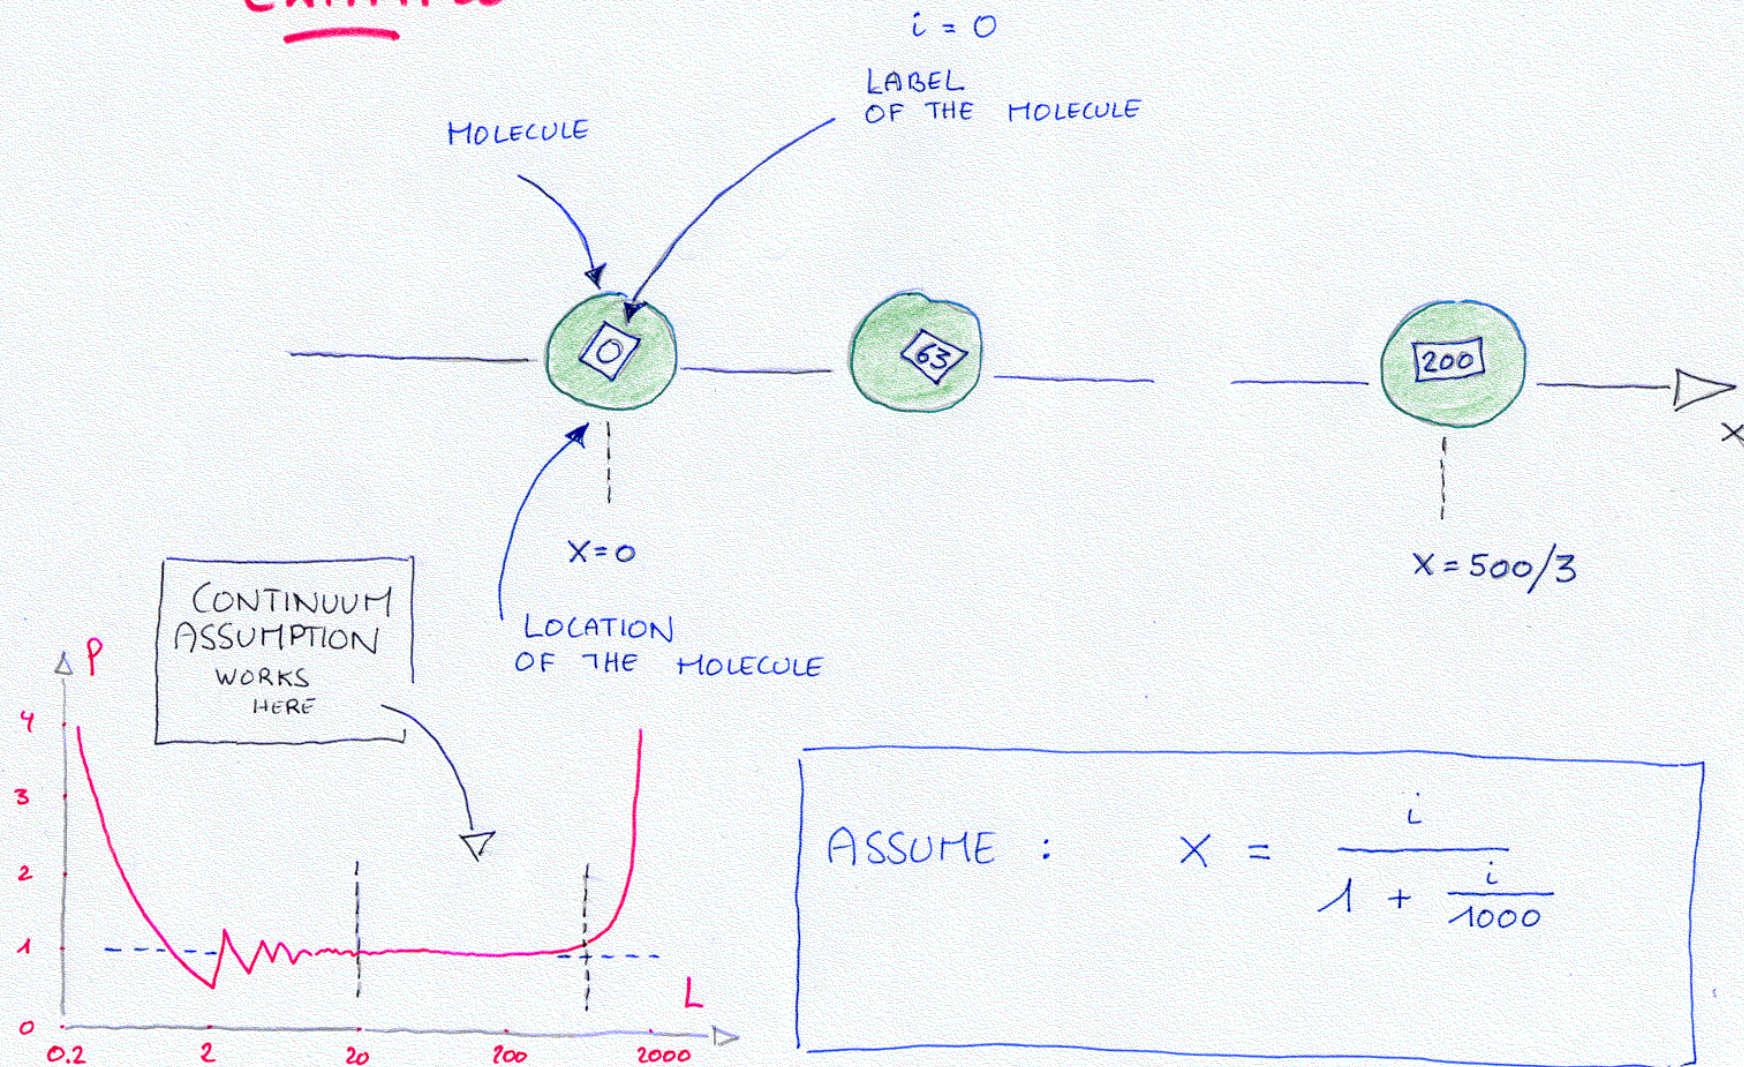 i = 0
LABEL
OF THE MOLECULE
MOLECULE
0
63
200
X
X=0
X = 500/3
LOCATION
OF THE MOLECULE
CONTINUUM
ASSUMPTION
WORKS
HERE
P
4
3
2
1
0
0.2
2
20
200
2000
L
ASSUME : X = i / (1 + i/1000)